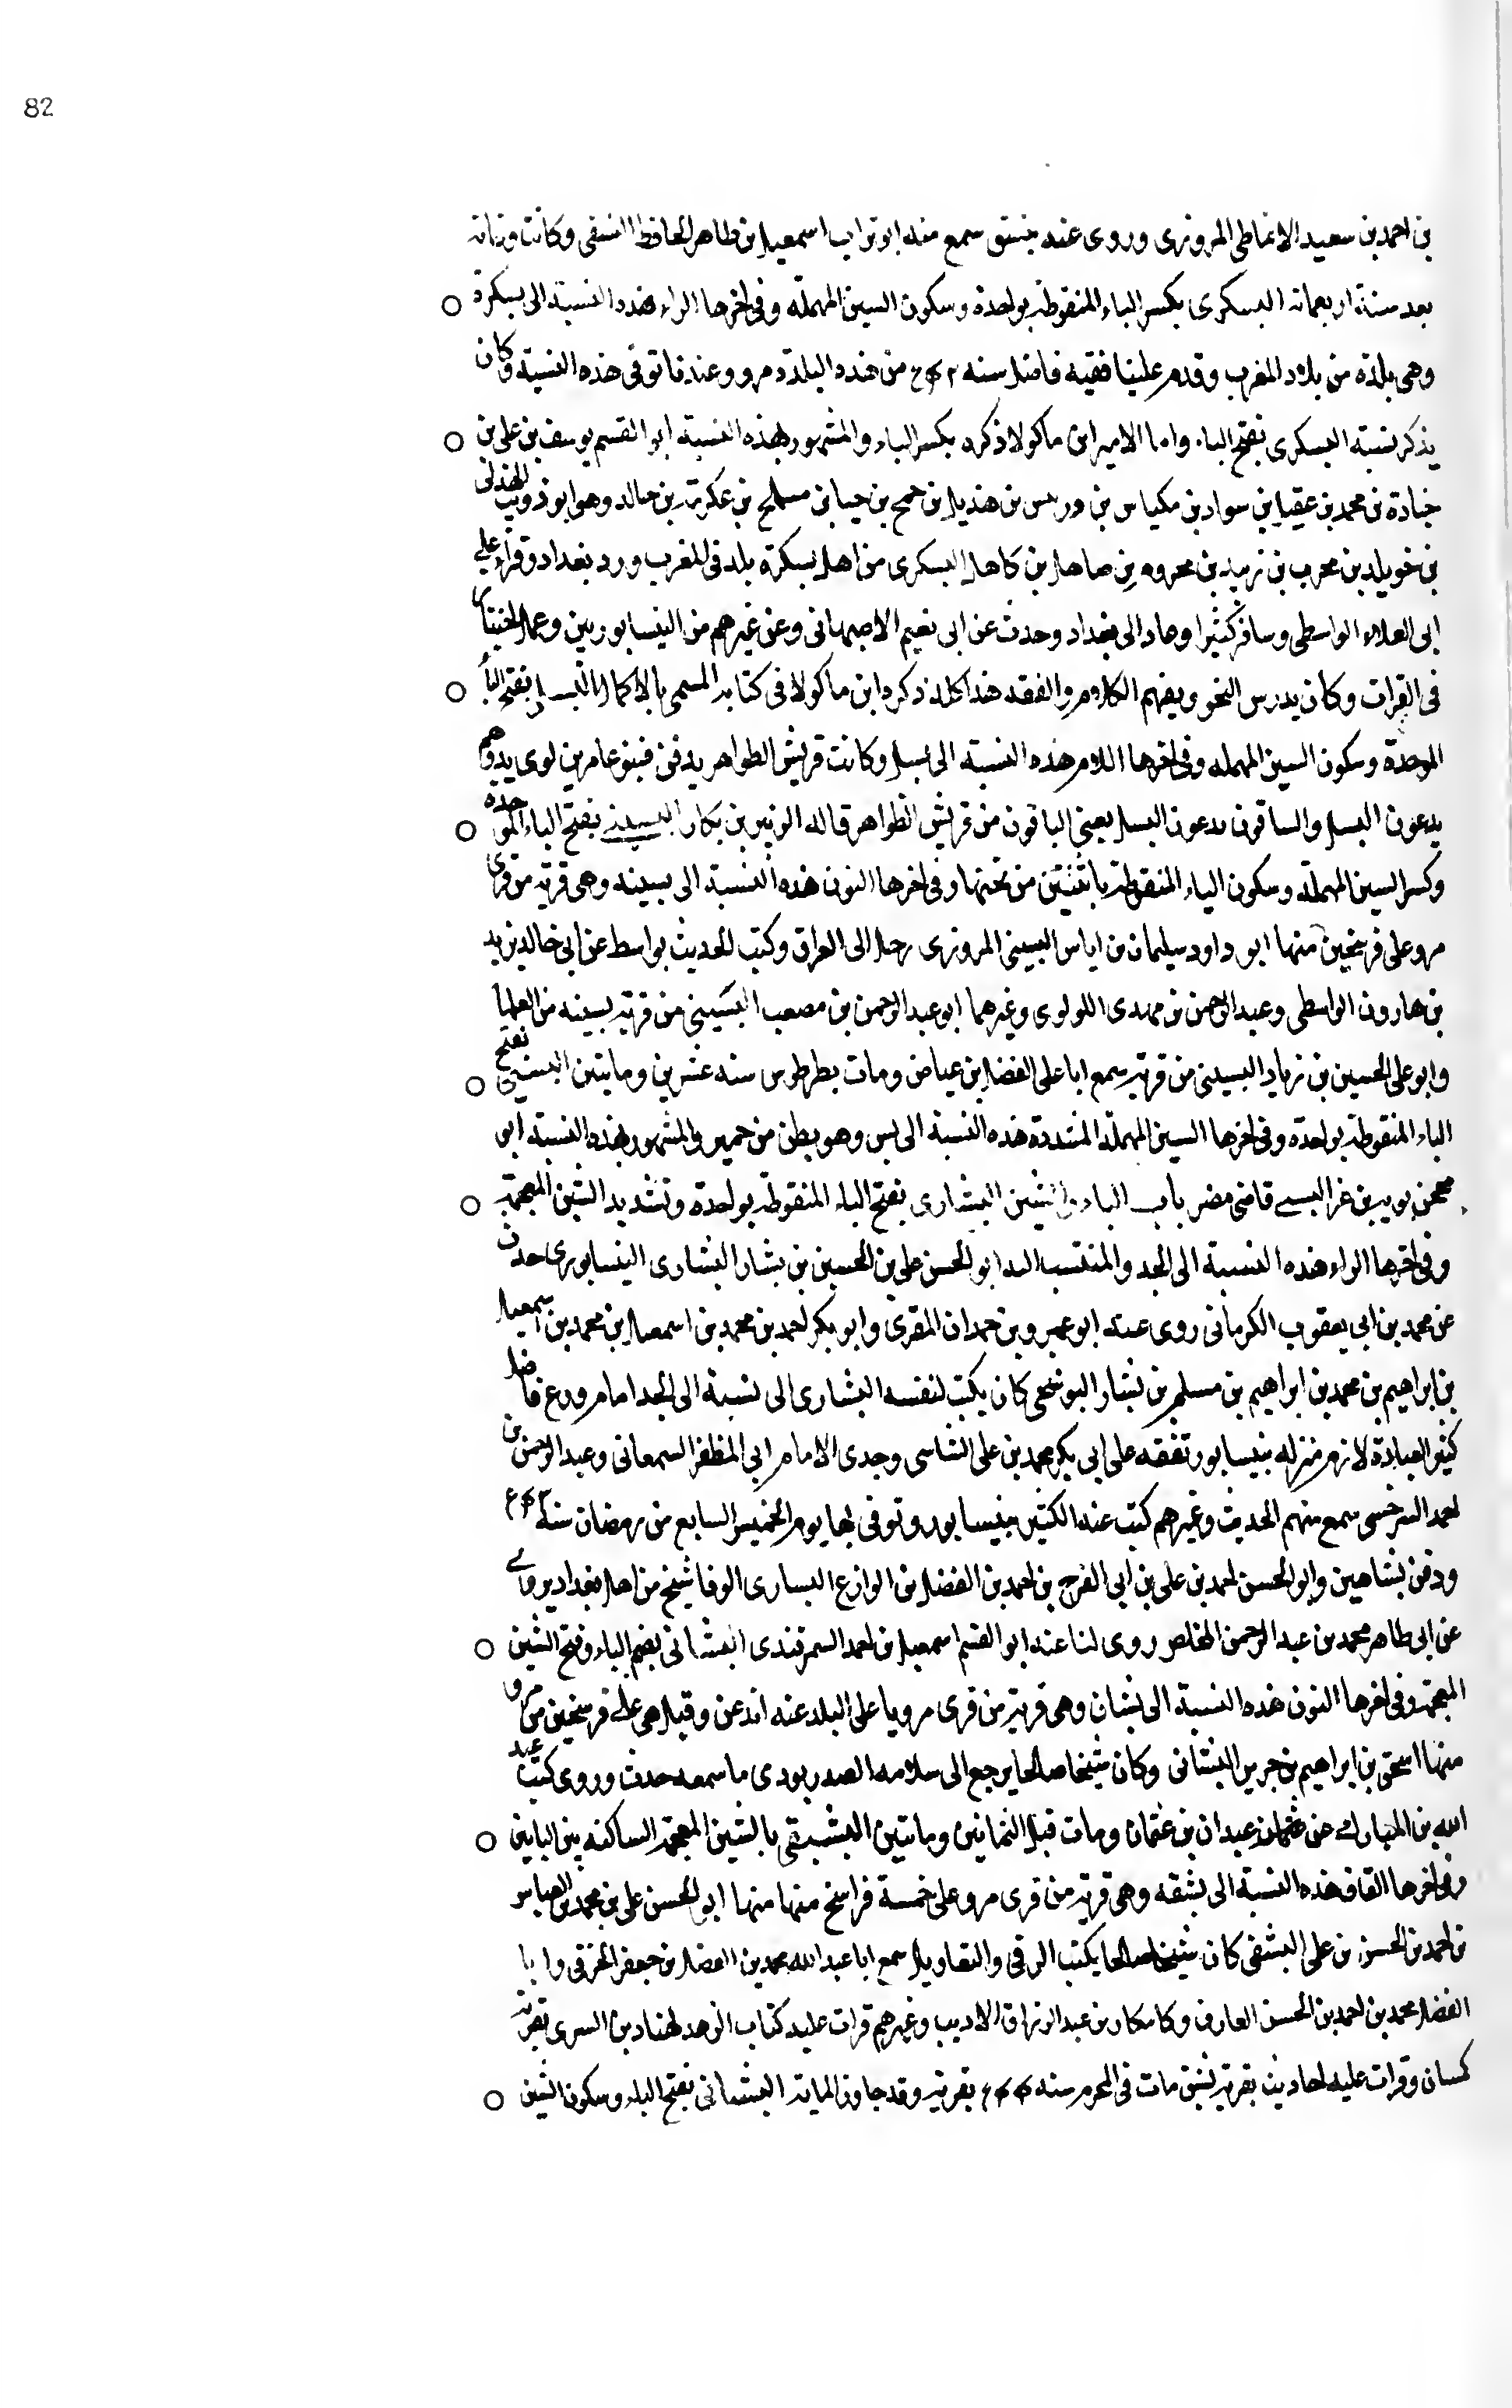 82
بن احمد بن سعيد الانماطى المروزى وروى عنه بنسف سمع منه ابو تراب اسمعيل بن طاهر الحافظ النسفى وكانت وفاته
بعد سنة اربعماية البسكرى بكسر الباء المنقوطة بواحدة وسكون السين المهملة وفى اخرها الراء هذه النسبة الى بسكرة
وهى بلدة من بلاد المغرب وقدم علينا فقيه فاضل سنه من هذه البلدة مرو وعندنا توفى هذه النسبة وكان
يذكر نسبته البسكرى بفتح الباء واما الامير ابن ماكولا ذكره بكسر الباء والمشهور بهذه النسبة ابو القسم يوسف بن على بن
جنادة بن محمد بن عقيل بن سواد بن مكياس بن ورىىس بن هذيل بن جمح بن حيا بن مسلمح بن عكرمة بن خالد وهو ابو ذويب الهذلى
بن خويلد بن محرب بن زبيد بن محروم بن صاهل بن كاهل البسكرى من اهل بسكرة بلد فى المغرب ورد بغداد وقرا على
ابى العلاء الواسطى وسافر كثيرا وعاد الى بغداد وحدث عن ابى نعيم الاصبهانى وعن غيرهم من النيسابوريين وعمل اختيارا
فى القرات وكان يدرس النحو ويفهم الكلام والفقه هذا كله ذكره ابن ماكولا فى كتابه المسمى بالاكمال البسلى بفتح الباء
الموحدة وسكون السين المهمله وفى اخرها اللام هذه النسبة الى بسل وكانت قريش الظواهر يدفن فبنو عامر بن لوى يدوهم
يدعون البسل والباقون يدعون اليسل يعنى الباقون من قريش الظواهر قاله الزبير بن بكار البسينى بفتح الباء الموحدة
وكسر السين المهملة وسكون الياء المنقوطة باثنتين من تحتها وفى اخرها النون هذه النسبة الى بسينه وهى قرية من قرى
مرو على فرسخين منها ابو داود سليمان بن اياس البسينى المروزى رحل الى العراق وكتب الحديث بواسط عن ابى خالد يزيد
بن هارون الواسطى وعبد الرحمن بن مهدى اللولوى وغيرهما ابو عبد الرحمن بن مصعب البسينى من قرية بسينه من العلماء
وابو على الحسين بن زياد البسينى من قرية سمع ابا على الفضل بن عياض ومات بطرطوس سنه عشرين وماتين البسى بفتح
الباء المنقوطة بواحدة وفى اخرها السين المهملة المشددة هذه النسبة الى بس وهو بطن من حمير والمشهور بهذه النسبة ابو
محجن بوبة بن غر البسى قاضى مضر باب الباء والشين البشارى بفتح الباء المنقوطة بواحدة وتشديد الشين المعجمة
وفى اخرها الراء هذه النسبة الى الجد والمنتسب اليه ابو الحسن على بن الحسين بن بشار البشارى النيسابورى حدث
عن محمد بن ابى يعقوب الكرمانى روى عنه ابو عمرو بن حمدان المقرى وابو بكر احمد بن محمد بن اسمعيل بن محمد بن اسمعيل
بن ابراهيم بن محمد بن ابراهيم بن مسلم بن بشار البوشنجى كان يكتب لنفسه البشارى الى نسبة الى الجد امام ورع فاضل
كثير العبادة لازم منزله بنيسابور تفقه على ابى بكر محمد بن على الشاسى وجدى الامام ابى المظفر السمعانى وعبد الرحمن بن
احمد السرخسى سمع منهم الحديث وغيرهم كتبت عنه الكثير بنيسابور وتوفى بها يوم الخميس السابع من رمضان سنه
ودفن بشاهين وابو الحسن احمد بن على بن ابى الفرج بن احمد بن الفضل بن الوازع البسارى الوفا شيخ من اهل بغداد يروى
عن ابى طاهر محمد بن عبد الرحمن المخلص روى لنا عنه ابو القسم اسمعيل بن احمد السمرقندى البشانى بضم الباء وفتح الشين
المعجمة وفى اخرها النون هذه النسبة الى بشان وهى قرية من قرى مرو يا على البلد عنه اندعن وقيل هى على فرسخين من مرو
منها اسحق بن ابراهيم بن جرير البشانى وكان شيخا صالحا يرجع الى سلامه الصدر يودى ما سمعه حدث وروى كتب عبد
الله بن المبارك عن عثمان عبدان بن عثمان ومات قبل الثمانين وماتين البشبقى بالشين المعجمة الساكنه بين البايين
وفى اخرها القاف هذه النسبة الى بشبقه وهى قرية من قرى مرو على خمسة فراسخ منها منها ابو الحسن على بن محمد بن العباس
بن احمد بن الحسن بن على البشبقى كان شيخا صالحا يكتب الرقى والتعاويذ سمع ابا عبد الله محمد بن الفضل بن جعفر الخرقى وابا
الفضل محمد بن احمد بن الحسن العارف وكامكار بن عبد الرزاق الاديب وغيرهم قرات عليه كتاب الزهد لهناد بن السرى بقرية
كمسان وقرات عليه احاديث بقرية بشبق مات فى المحرم سنه بقرية وقد جاوز الماية البشتانى بفتح الباء وسكون الشين